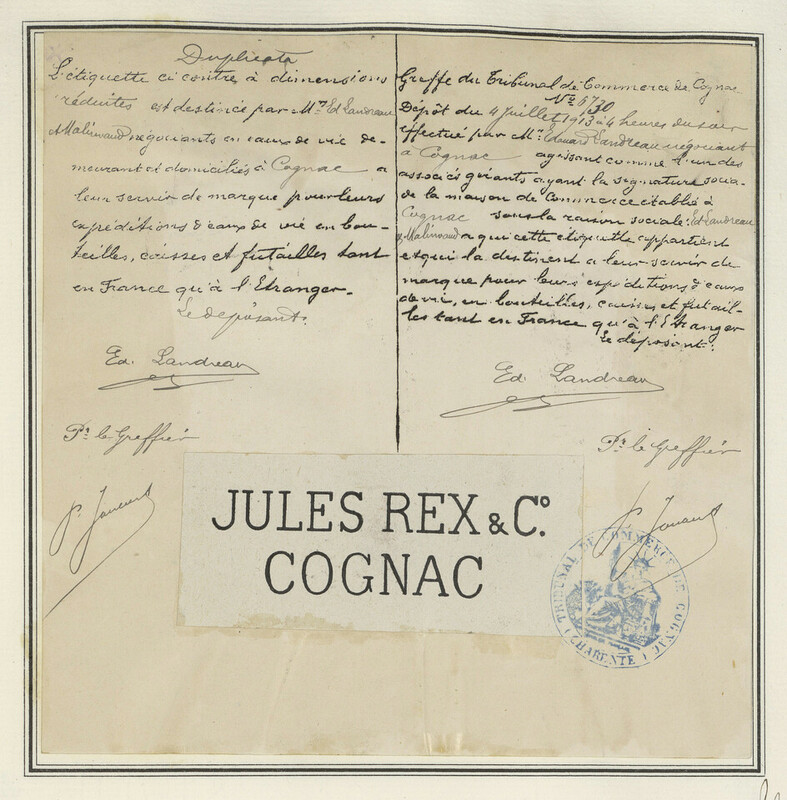 Duplicata
L'étiquette ci contre à dimensions
réduites est destinée par Mrs Ed Landreau
& Malinvaud négociants en eaux de vie de-
meurant et domiciliés à Cognac a
leur servir de marque pour leurs
expéditions d'eaux de vie en bou-
teilles, caisses et futailles tant
en France qu'à l'Etranger.
Le déposant.
Ed. Landreau
Pr. le Greffier
Greffe du Tribunal de Commerce de Cognac
No 6730
Dépôt du 4 Juillet 1913 à 4 heures du soir
effectué par Mr. Edouard Landreau négociant
à Cognac agissant comme l'un des
associés gérants ayant la signature socia-
de la maison de Commerce établie à
Cognac sous la raison sociale: Ed Landreau
& Malinvaud a qui cette étiquette appartient
et qui la destinent a leur servir de
marque pour leurs expéditions d'eaux
de vie, en bouteilles, caisses et futail-
les tant en France qu'à l'Etranger
Le déposant:
Ed. Landreau
Pr. le Greffier
JULES REX & Co.
COGNAC
TRIBUNAL DE COMMERCE DE COGNAC
(CHARENTE)